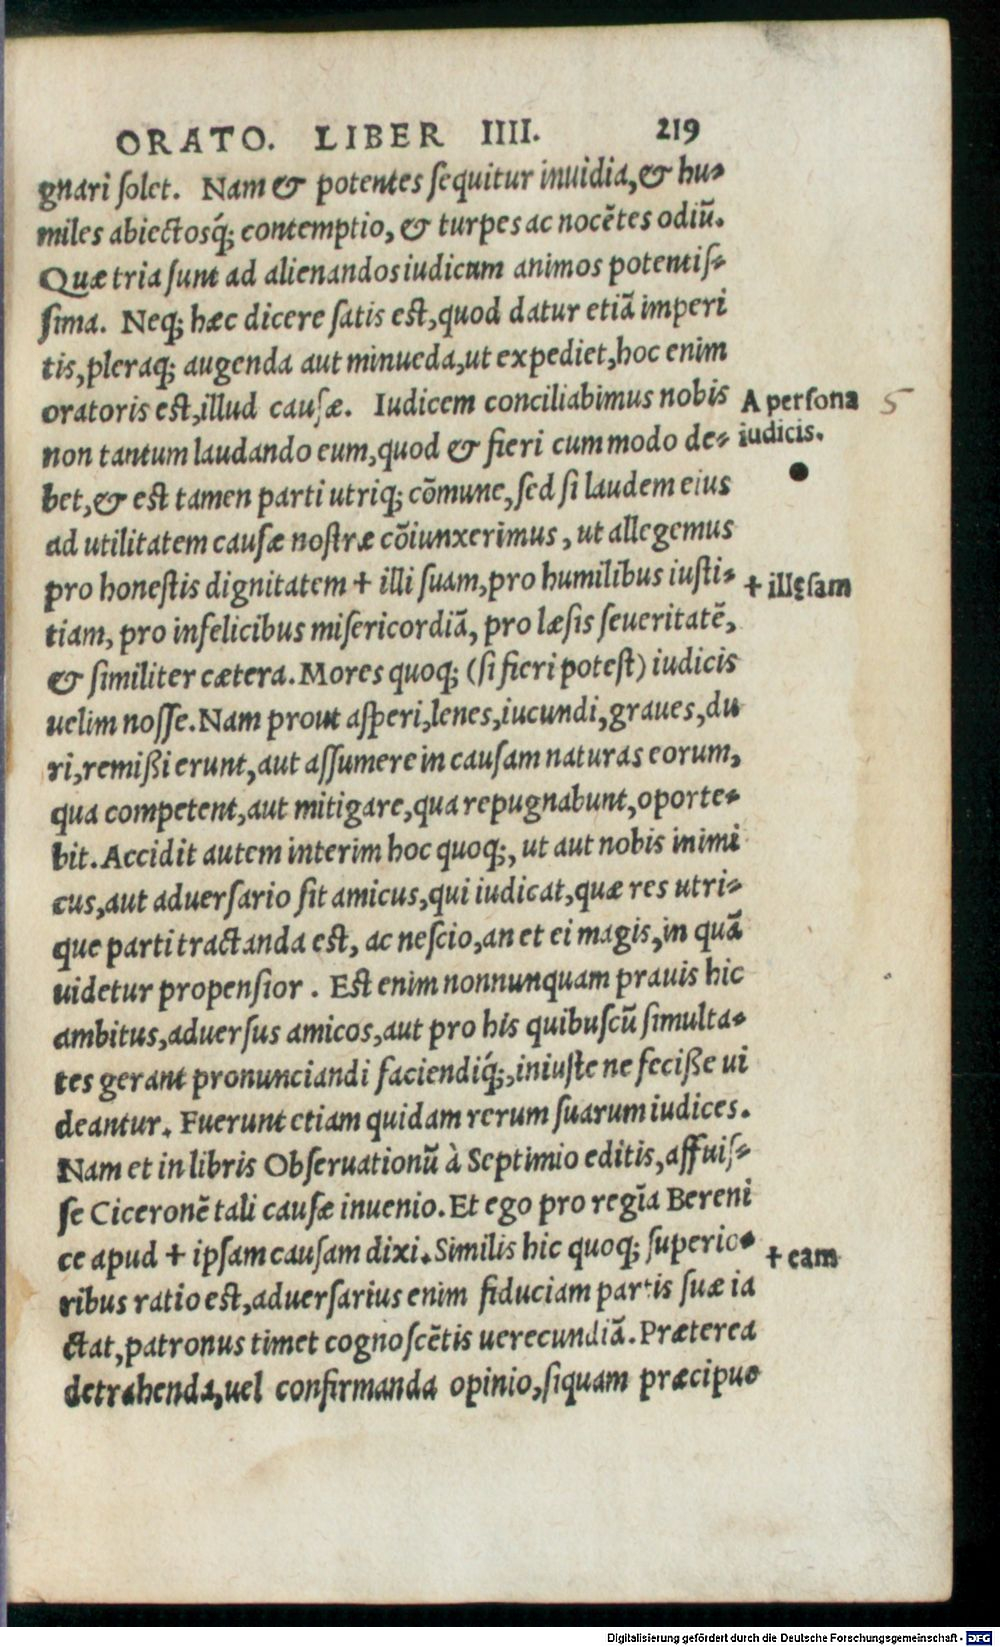 ORATO. LIBER IIII. 219
gnari ſolet. Nam & potentes ſequitur inuidia,& hu-
miles abiectosq́; contemptio, & turpes ac nocētes odiū.
Quæ tria ſunt ad alienandos iudicum animos potentiſ-
ſima. Neq; hæc dicere ſatis eſt,quod datur etiā imperi
tis,pleraq; augenda aut minueda,ut expediet,hoc enim
oratoris eſt,illud cauſæ. Iudicem conciliabimus nobis
A perſona 5
non tantum laudando eum,quod & fieri cum modo de-
iudicis.
bet,& eſt tamen parti utriq; cōmune,ſed ſi laudem eius
ad utilitatem cauſæ noſtræ cōiunxerimus, ut allegemus
pro honeſtis dignitatem + illi ſuam,pro humilibus iuſti-
+ illęſam
tiam, pro infelicibus miſericordiā, pro læſis ſeueritatē,
& ſimiliter cætera. Mores quoq; (ſi fieri poteſt) iudicis
uelim noſſe. Nam prout aſperi,lenes,iucundi,graues,du
ri,remißi erunt,aut aſſumere in cauſam naturas eorum,
qua competent,aut mitigare,qua repugnabunt,oporte-
bit. Accidit autem interim hoc quoq;, ut aut nobis inimi
cus,aut aduerſario ſit amicus,qui iudicat,quæ res utri-
que parti tractanda eſt, ac neſcio,an et ei magis,in quā
uidetur propenſior. Eſt enim nonnunquam prauis hic
ambitus,aduerſus amicos,aut pro his quibuſcū ſimulta-
tes gerant pronunciandi faciendiq́;,iniuſte ne feciße ui
deantur. Fuerunt etiam quidam rerum ſuarum iudices.
Nam et in libris Obſeruationū à Septimio editis,affuiſ-
ſe Ciceronē tali cauſæ inuenio. Et ego pro regīa Bereni
ce apud + ipſam cauſam dixi. Similis hic quoq; ſuperio-
+ eam
ribus ratio eſt,aduerſarius enim fiduciam partis ſuæ ia
ctat,patronus timet cognoſcētis uerecundiā. Præterea
detrahenda,uel confirmanda opinio,ſiquam præcipue
Digitalisierung gefördert durch die Deutsche Forschungsgemeinschaft - DFG